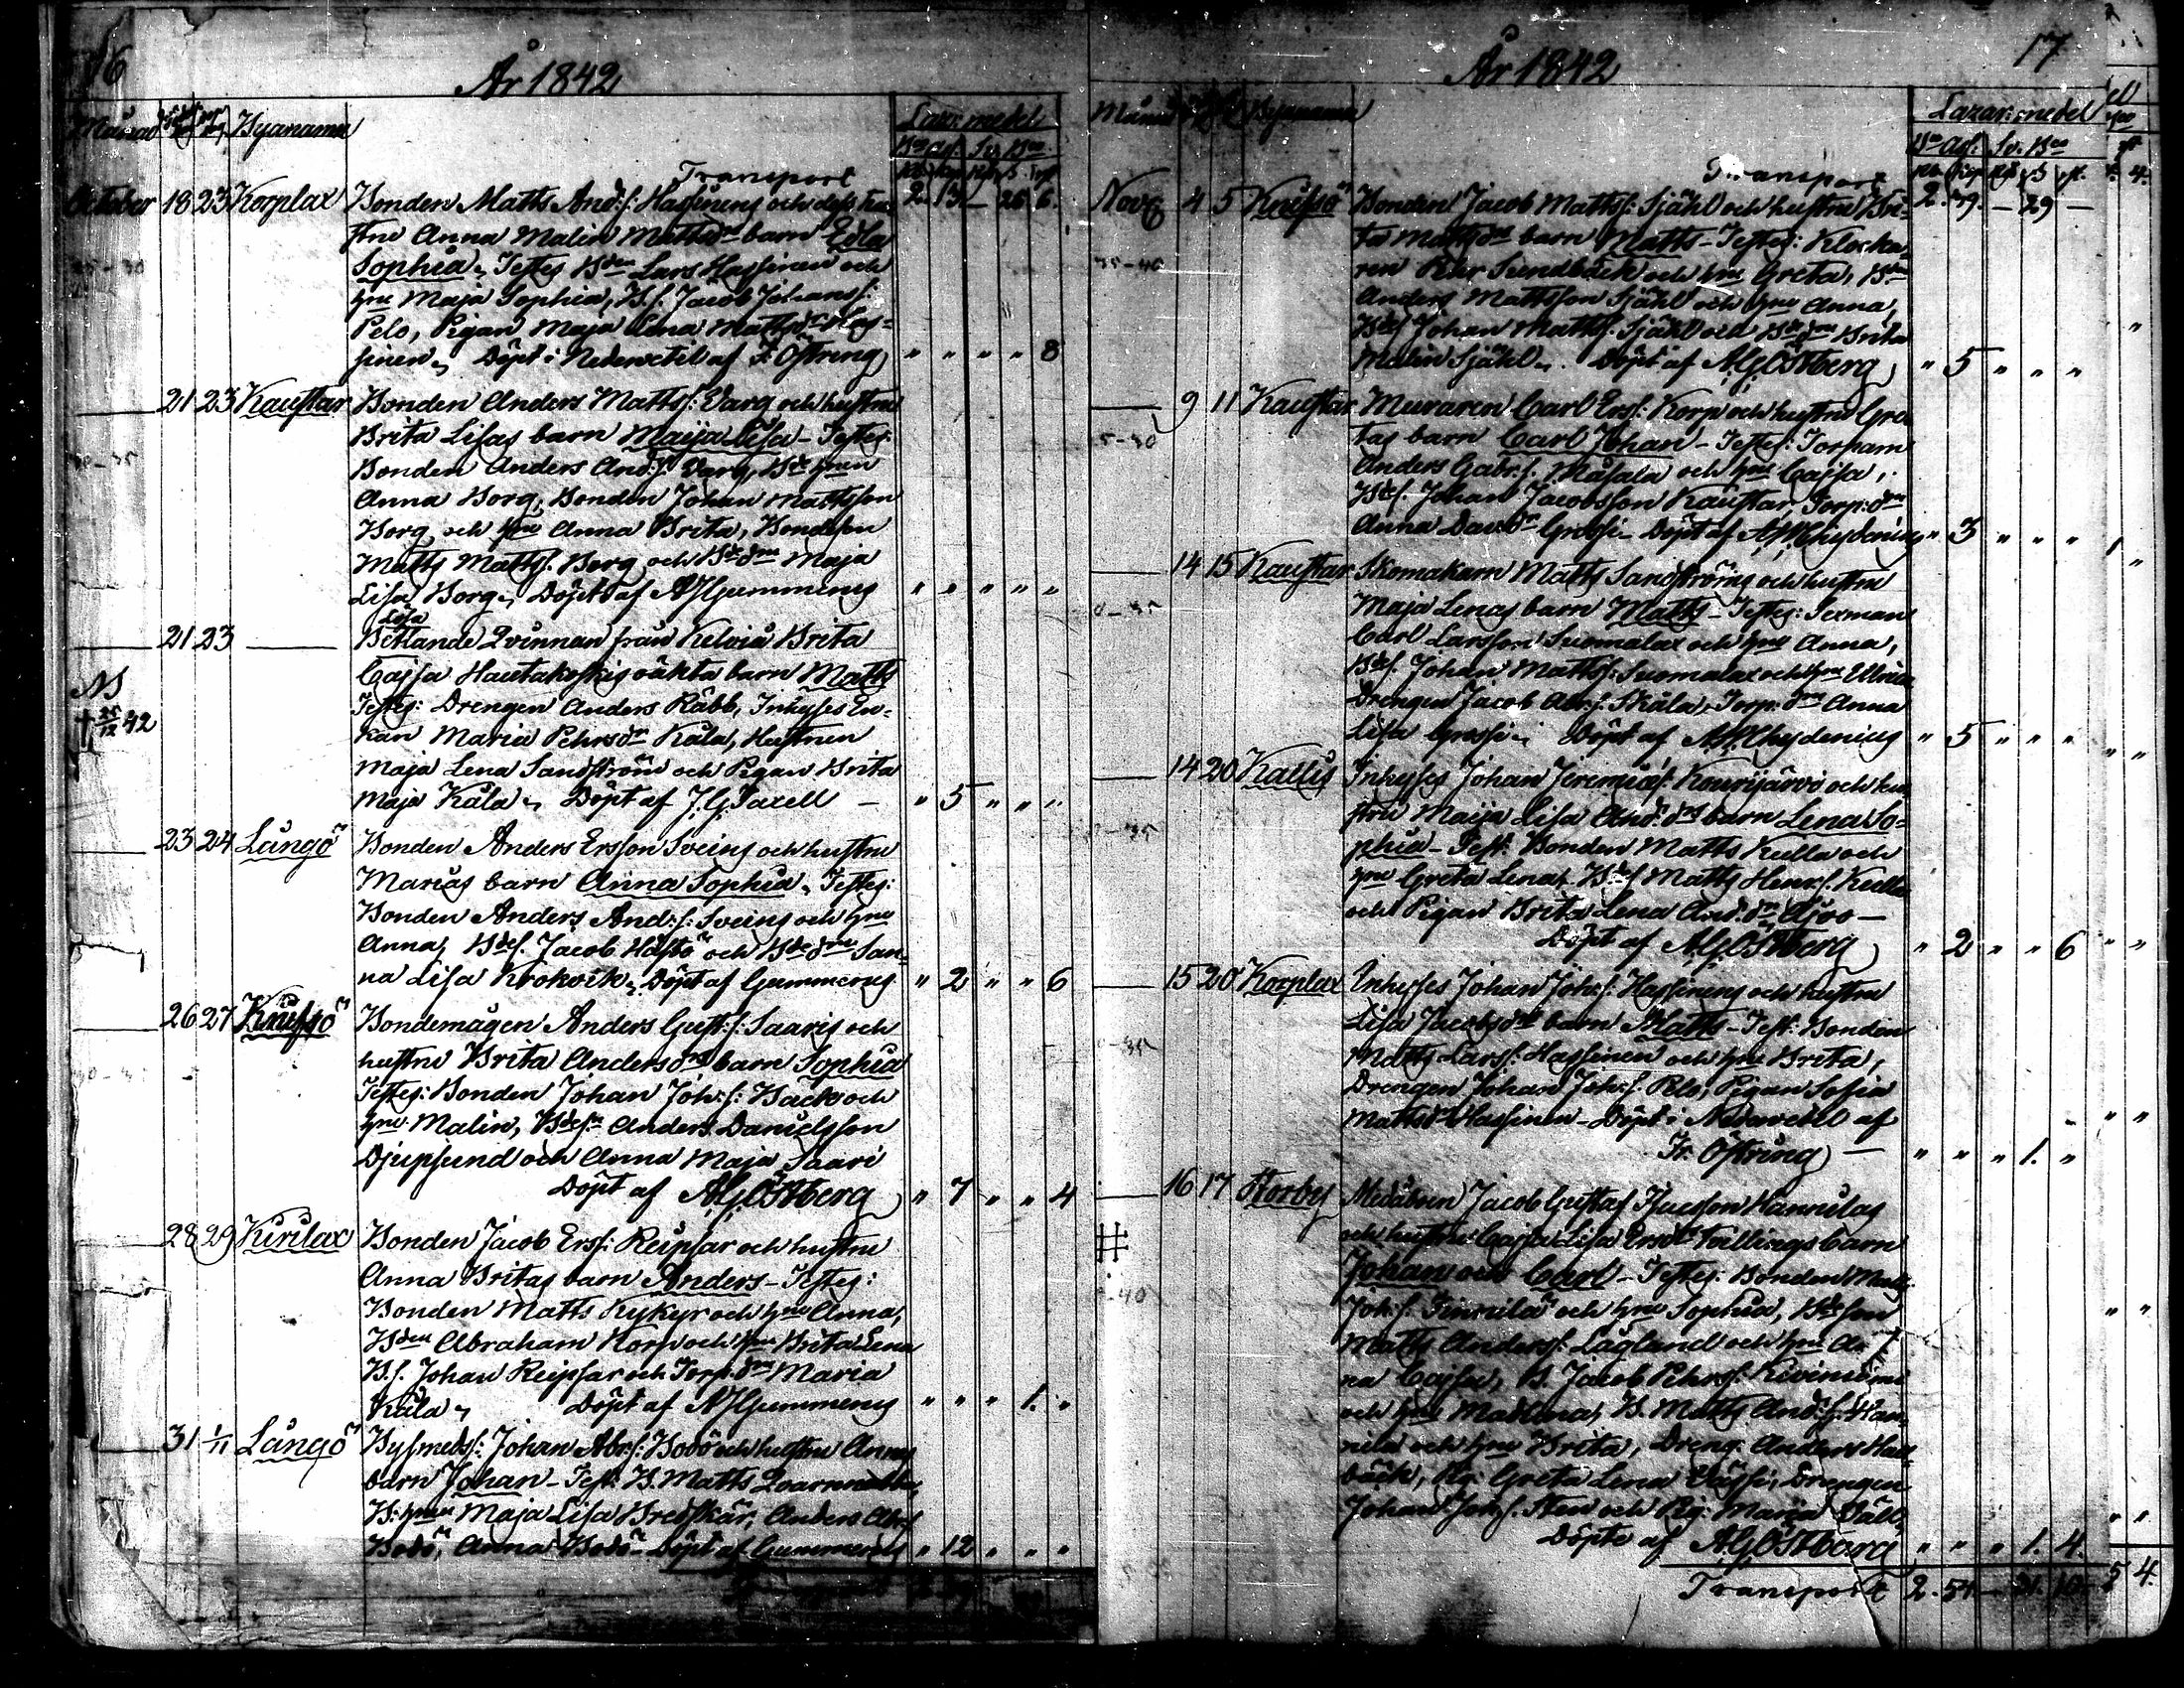 16
År 1842
Månad Byanamn
Lazar: medel
Transport 2 13 – 26 6.
October 18 23 Korplax Bonden Matts And:s: Hassinens och dess hu-
stru Anna Malin Mattsdrs barn Edla
Sophia, Testes Bden Lars Hassinen och
hne Maja Sophia, B.s. Jacob Johans s:
Pelo, Pigan Maja Lena Mattsdr Has-
sinen, Döpt i Nedervetil af F. Östring " " " " 8
21 23 Kaustar Bonden Anders Matts s: Varg och hustru
Brita Lisas barn Maija Lisa – Testes:
Bonden Anders And:s: Varg, Bde hnen
Anna Borg, Bonden Johan Mattsson
Borg och hne Anna Brita, Bondeson
Matts Matts s. Borg och Bde dne Maja
Lisa Borg, Döpt af A Gummerus " " " " "
Lösa
21 23 Betlande Qvinnan från Kelviå Brita
Cajsa Hautakoskis oäkta barn Matts
Testes: Drengen Anders Räbb, Inhyses En-
kan Maria Pehrsdr Kåla, Hustrun
Maja Lena Sandström och Pigan Brita
Maja Kåla, Döpt af J. G. Taxell – " 5 " " "
N
† 25/12 42
23 24 Långö Bonden Anders Ersson Sveins och hustru
Marias barn Anna Sophia, Testes:
Bonden Anders And:s: Sveins och hne
Anna, Bdes. Jacob Hästö och Bde dne San-
na Lisa Krokvik, Döpt af Gummerus " 2 " " 6
26 27 Knifsö Bondemågen Anders Gust:s: Saaris och
hustru Brita Andersdrs barn Sophia
Testes: Bonden Johan Joh:s: Backo och
hne Malin, Bdesn Anders Danielsson
Djupsund och Anna Maja Saari
Döpt af A.G. Östberg " 7 " " 4
28 29 Kirilax Bonden Jacob Ers s: Reipsar och hustru
Anna Britas barn Anders – Testes:
Bonden Matts Kykyr och hne Anna,
Bden Abraham Korp och hne Brita Lena
B.s. Johan Reipsar och Torp. dne Maria
Kåla, Döpt af A Gummerus " " " 1. "
31 1/11 Långö Bysmeds s: Johan Abr:s: Bodö och hustru Annas
barn Johan – Test: B. Matts
B: hnen Maja Lisa Bredskär, Anders Abr:s
Bodö, Anna Bodö – Döpt af Gummerus " 12 " " "
17
År 1842
Månad Byanamn
Lazar: medel
Transport 2. 29. – 29 –
Nov. 4 5 Knifsö Bonden Jacob Matts s: Själs och hustru Bri-
ta Mattsdrs barn Matts – Testes: Klocka-
ren Pehr Sundbäck och hne Greta, Bden
Anders Mattsson Själ och hne Anna,
Bdes Johan Matts s. Själ och Bde dne Brita
Malin Själ, Döpt af A.G. Östberg " 5 " " "
9 11 Kaustar Muraren Carl Ers s: Korp och hustru Gre-
tas barn Carl Johan – Testes: Torparn
Anders Gabr.s. Måsala och hne Cajsa,
Bdes. Johan Jacobsson Kaustar, Torp: dne
Anna Dav.dr Grossi – Döpt af A.H. Chydenius " 3 " " "
14 15 Kaustar Skomakarn Matts Sandströms och hustru
Maja Lenas barn Matts – Testes: Sexman
Carl Larsson Suomalax och hne Anna,
Bdes. Johan Matts s: Suomalax och hne Ulrica
Drengen Jacob Abr.s. Skåla, Torp: dne Anna
Lisa Grossi – Döpt af A.H. Chydenius " 5 " " "
14 20 Kallis Inhyses Johan Jeremias s. Kourijärvi och hu-
stru Maija Lisa And: drs barn Lena So-
phia – Test: Bonden Matts Kulla och
hne Greta Lena, Bdes Matts Henr.s. Kulla
och Pigan Brita Lena And: dr Ajos –
Döpt af A.G. Östberg " 2 " " 6
15 20 Korplax Inhyses Johan Joh:s: Hassinens och hustru
Lisa Jacobsdrs barn Matts – Test: Bonden
Matts Lars s: Hassinen och hne Brita,
Drengen Johan Joh:s: Pelo, Pigan Sofia
Mattsdr Hassinen – Döpt i Nedervetil af
Fr. Östring – " " " 1. "
16 17 Storby Jacob Gustaf Isacsson Hannilas
och hustru Cajsa Lisa Ersdrs Tvillings barn
Johan och Carl – Testes: Bonden Matts
Joh:s. och hne Sophia, Bdeson
Matts Anders s: Lågland och hne An-
na Cajsa, B. Jacob Pehrs s. Kiviniemi
och hne Madlena, B. Matts And:s: Han-
nila och hne Brita, Dreng. Anders
bäck, Pi: Greta Lena Drengen
Johan Joh s. Sten och Pig: Maria
Döpte af A.G. Östberg " " " 1. 4.
Transport 2. 54 – 31. 10